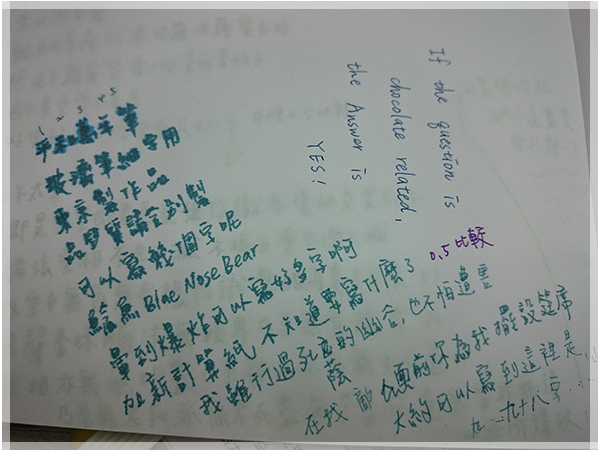 If the question is
chocolate related,
the Answer is
YES!
1 2 3 4 5
平和萬年筆
玻璃筆細字用
東京製作品
可以寫幾個字呢
鯨魚 Blue Nose Bear
量到爆炸可以寫好多字啊
加新計算紙 不知道要寫什麼了
0.5比較
我雖行過死蔭的幽谷,也不怕遭害
在我敵人面前你為我擺設筵席
大約可以寫到這裡是
九十八字......